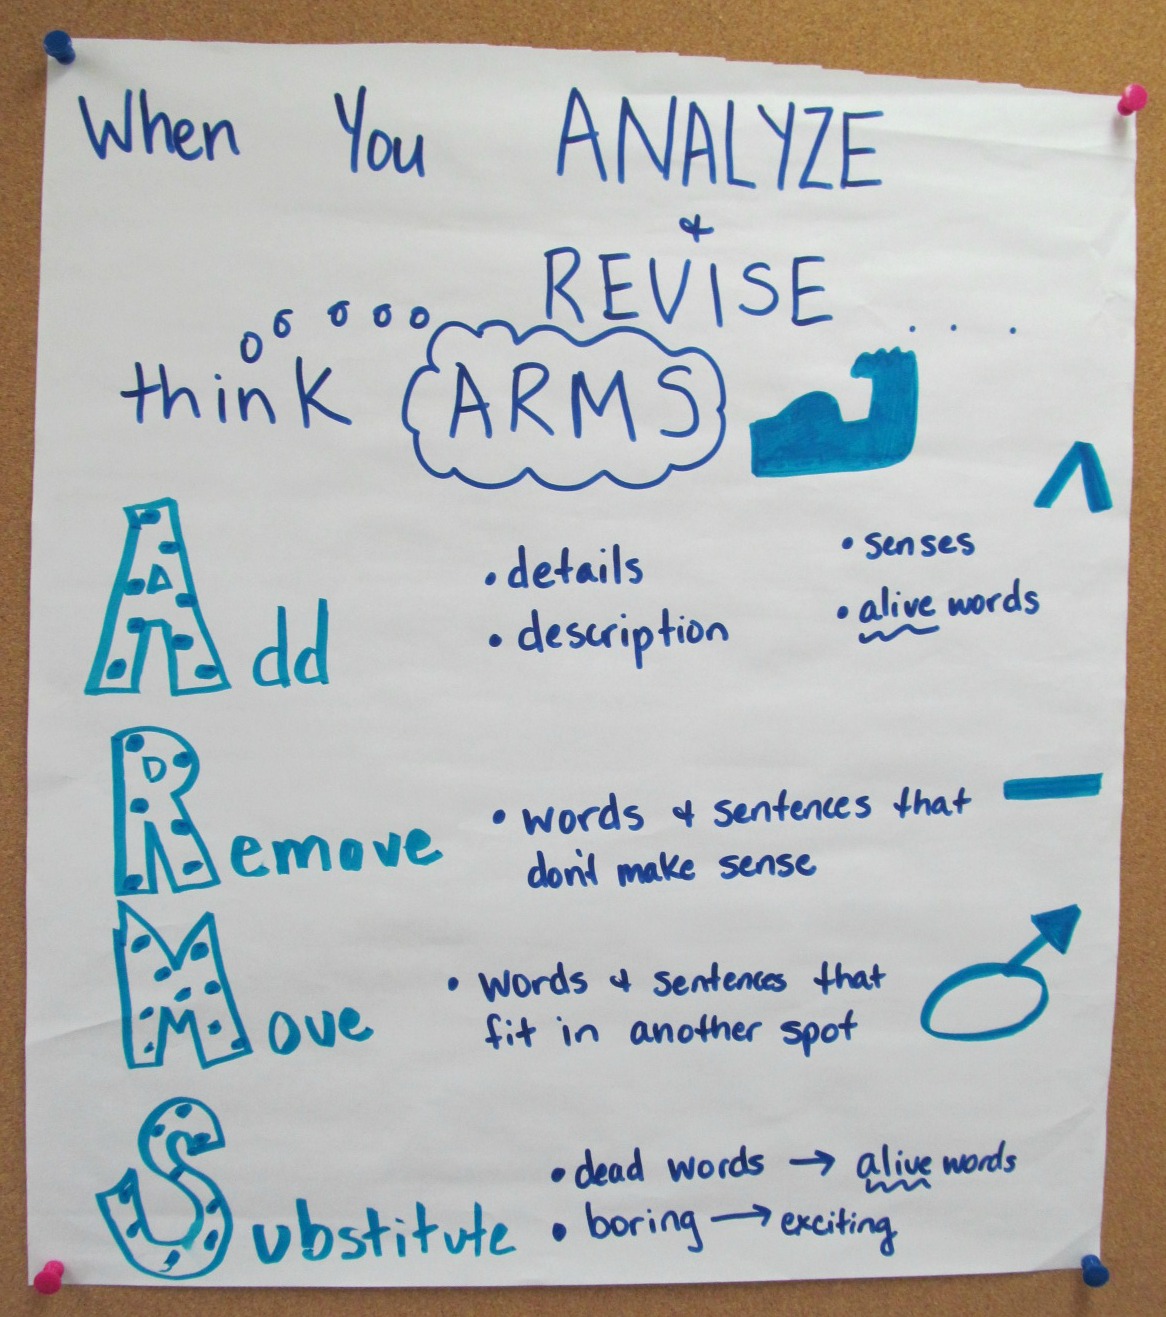 When You ANALYZE
&
REVISE ....
think ARMS
Add
• details
• description
• senses
• alive words
Remove
• words & sentences that
don't make sense
Move
• words & sentences that
fit in another spot
Substitute
• dead words → alive words
• boring → exciting